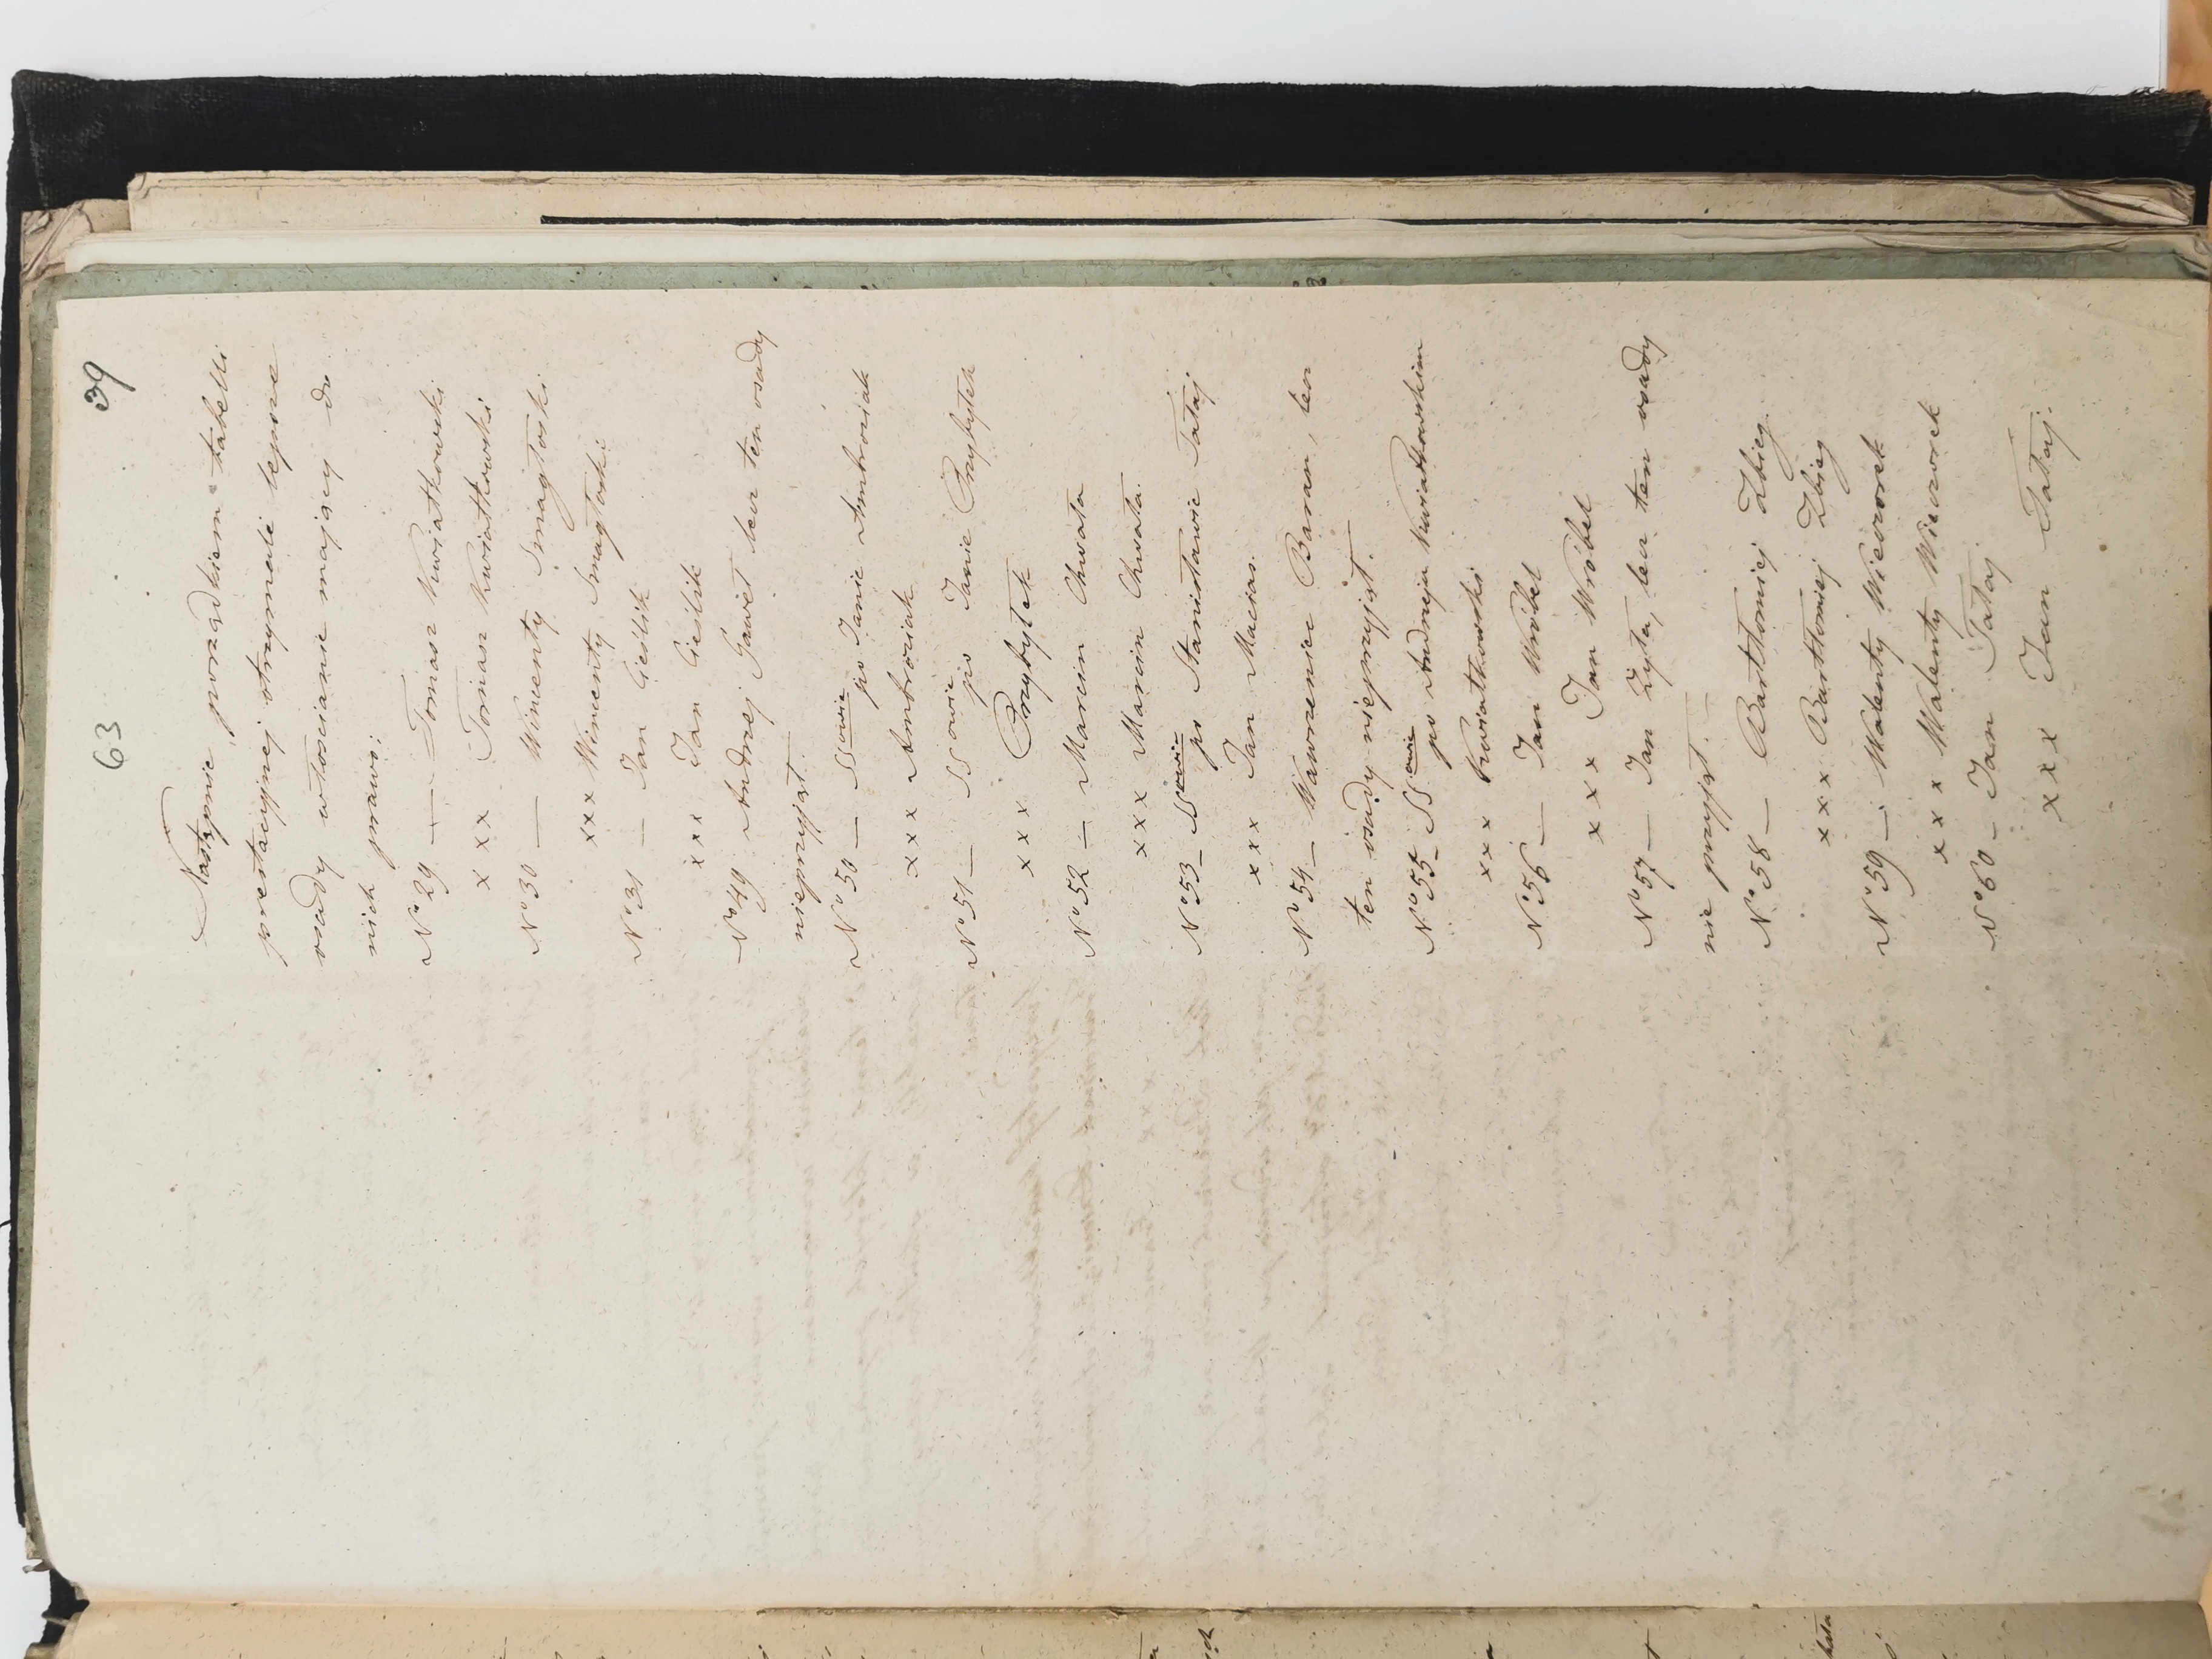 63 39
Następnie, porządkiem tabelli
prestacyjnej otrzymali lepsze
osady włościanie mający do
nich prawo:
No 29 — Tomasz Kwiatkowski
xxx Tomasz Kwiatkowski
No 30 — Wincenty Smagłoski
xxx Wincenty Smagłoski
No 31 — Jan Cieślik
xxx Jan Cieślik
No 49 Andrzej Gaweł lecz ten osady
nieprzyjął.
No 50 — SSowie po Janie Ambroziak
xxx Ambroziak
No 51 — SSowie po Janie Przybyłek
xxx Przybyłek
No 52 — Marcin Chwała
xxx Marcin Chwała.
No 53 — SSowie po Stanisławie Tataj
xxx Jan Macias.
No 54 — Wawrzeniec Baran, lecz
ten osady nieprzyjął. —
No 55 — SSowie po Andrzeju Kwiatkowskim
xxx Kwiatkowski
No 56 — Jan Wróbel
xxx Jan Wróbel
No 57 — Jan Zyta, lecz ten osady
nie przyjął. —
No 58 — Bartłomiej Zbieg
xxx Bartłomiej Zbieg
No 59 — Walenty Wieczorek
xxx Walenty Wieczorek
No 60 — Jan Tataj
xxx Jan Tataj.